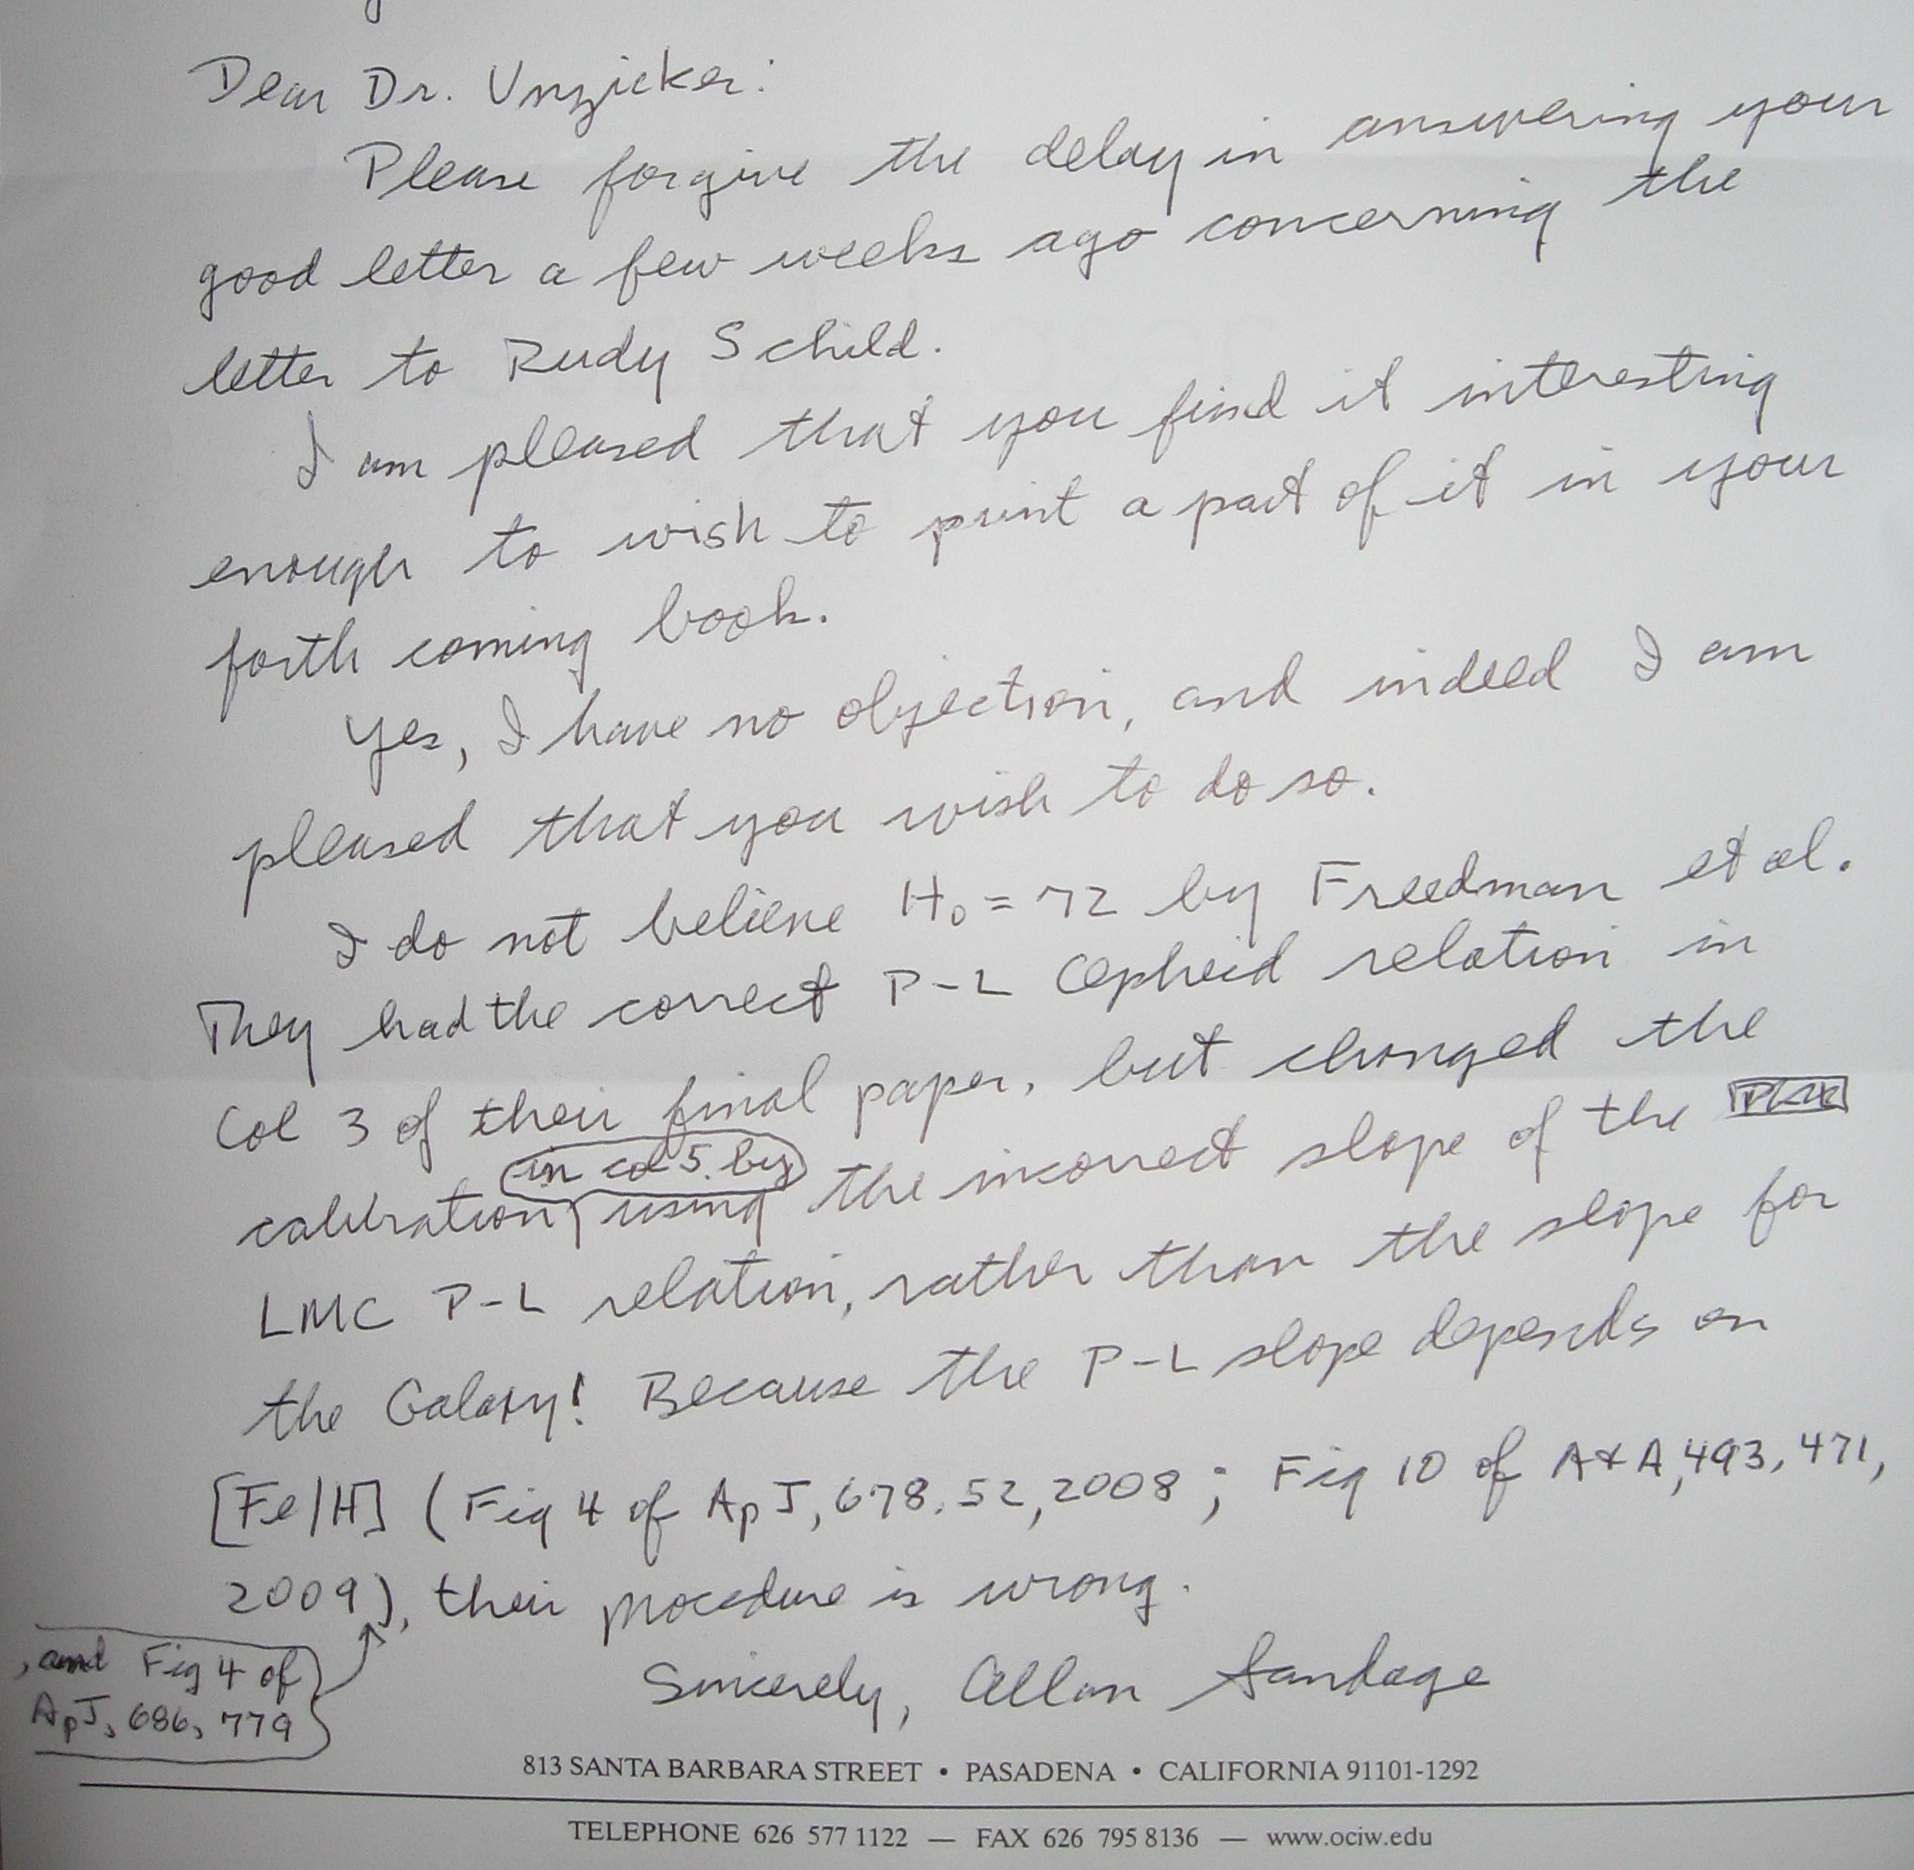 Dear Dr. Unzicker:
Please forgive the delay in answering your
good letter a few weeks ago concerning the
letter to Rudy Schild.
I am pleased that you find it interesting
enough to wish to print a part of it in your
forth coming book.
Yes, I have no objection, and indeed I am
pleased that you wish to do so.
I do not believe H₀ = 72 by Freedman et al.
They had the correct P-L Cepheid relation in
Col 3 of their final paper, but changed the
calibration in col 5. by using the incorrect slope of the
LMC P-L relation, rather than the slope for
the Galaxy! Because the P-L slope depends on
[Fe/H] (Fig 4 of ApJ, 678, 52, 2008; Fig 10 of A&A, 493, 471,
2009), their procedure is wrong.
, and Fig 4 of
ApJ, 686, 779
Sincerely, Allan Sandage
813 SANTA BARBARA STREET • PASADENA • CALIFORNIA 91101-1292
TELEPHONE 626 577 1122 — FAX 626 795 8136 — www.ociw.edu